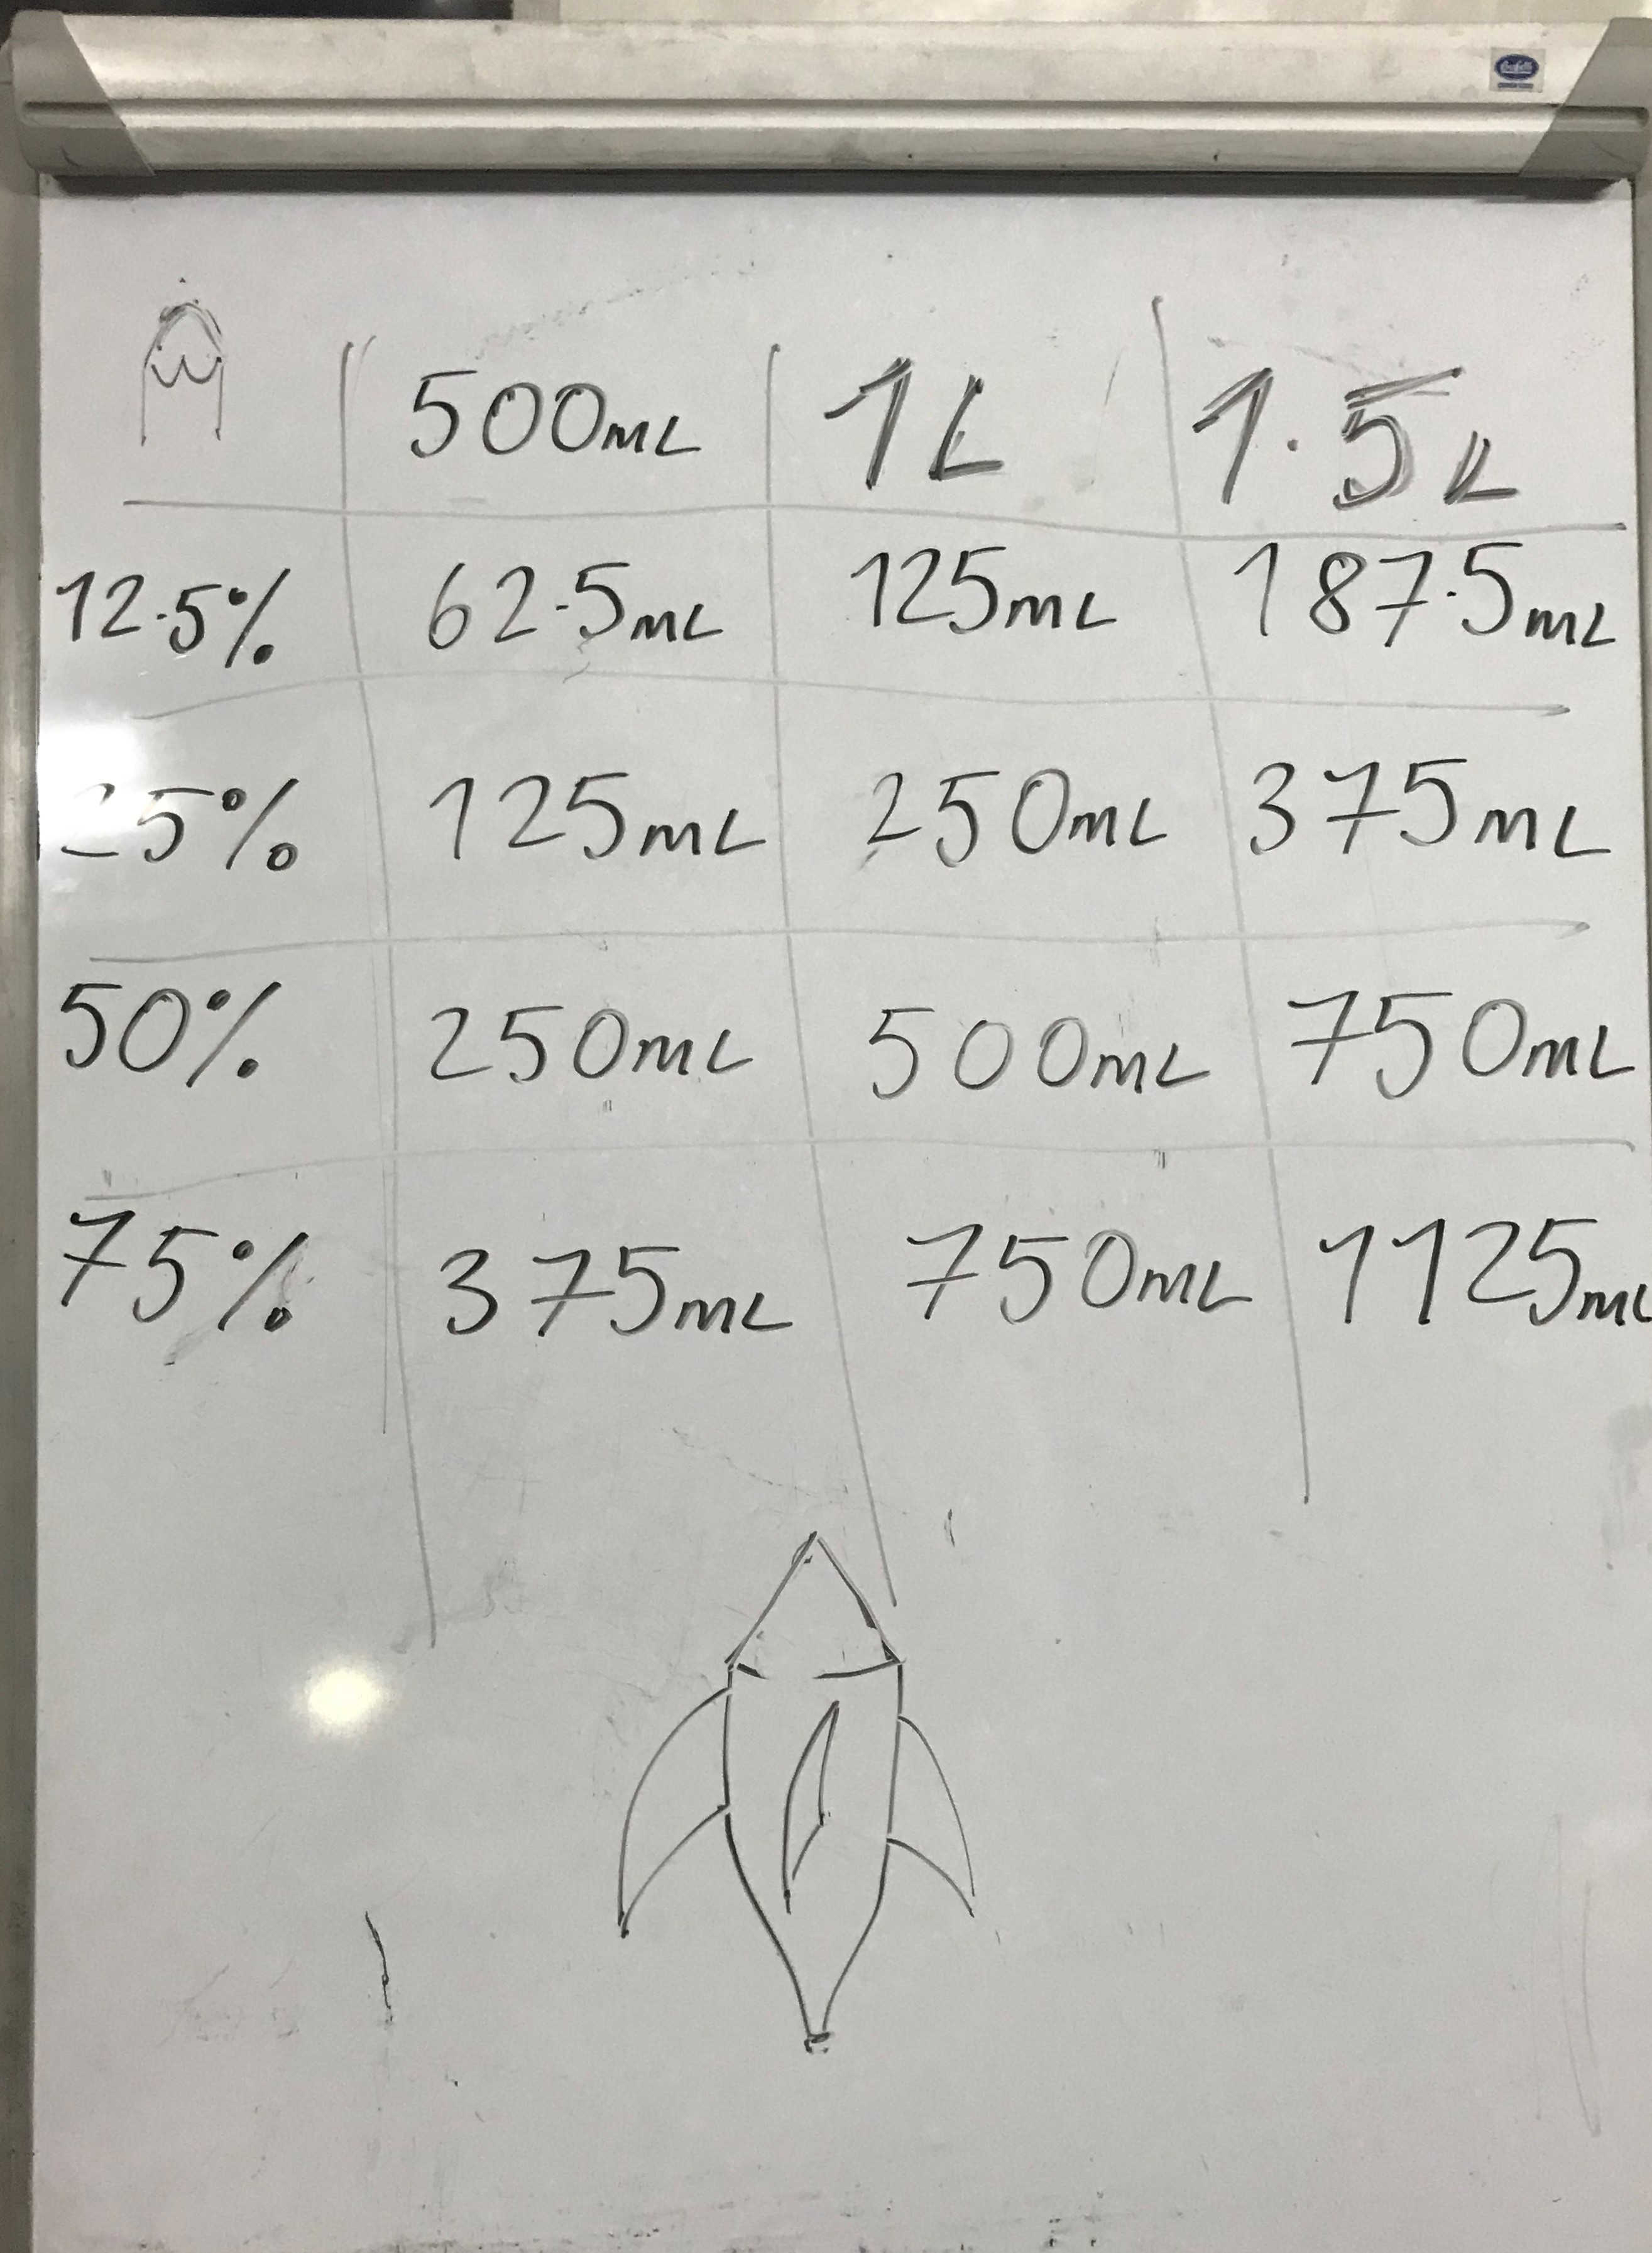 500mL 1L 1.5L
12.5% 62.5mL 125mL 187.5mL
25% 125mL 250mL 375mL
50% 250mL 500mL 750mL
75% 375mL 750mL 1125mL